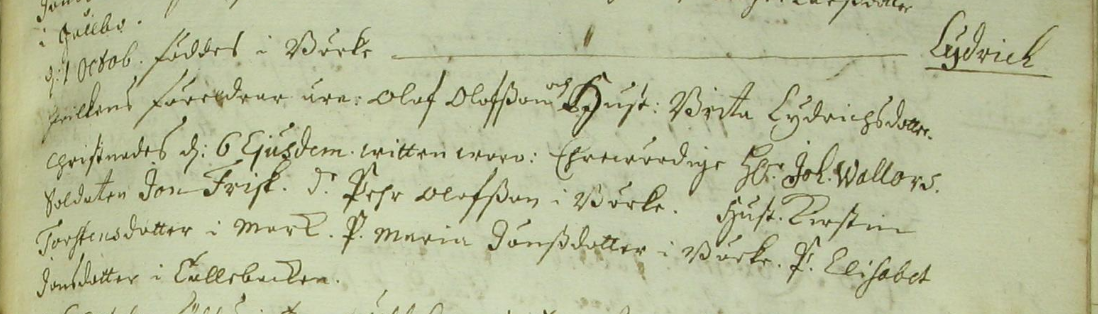 i Jullbo.
d: 1 Octob. föddes i Börke Lydrich
Hvilkens föreldrar äre: Olof Olofßon och Hust: Brita Lydrichsdotter.
Christnades d: 6 Ejusdem. witten wore: Ehrewördige Hr: Joh. Wallors.
Soldaten Jon Frisk. D. Pehr Olofßon i Börke. Hust. Kerstin
Torstensdotter i Mark. P. Maria Jonßdotter i Börke. P. Elisabet
Jonsdotter i Tullebacken.